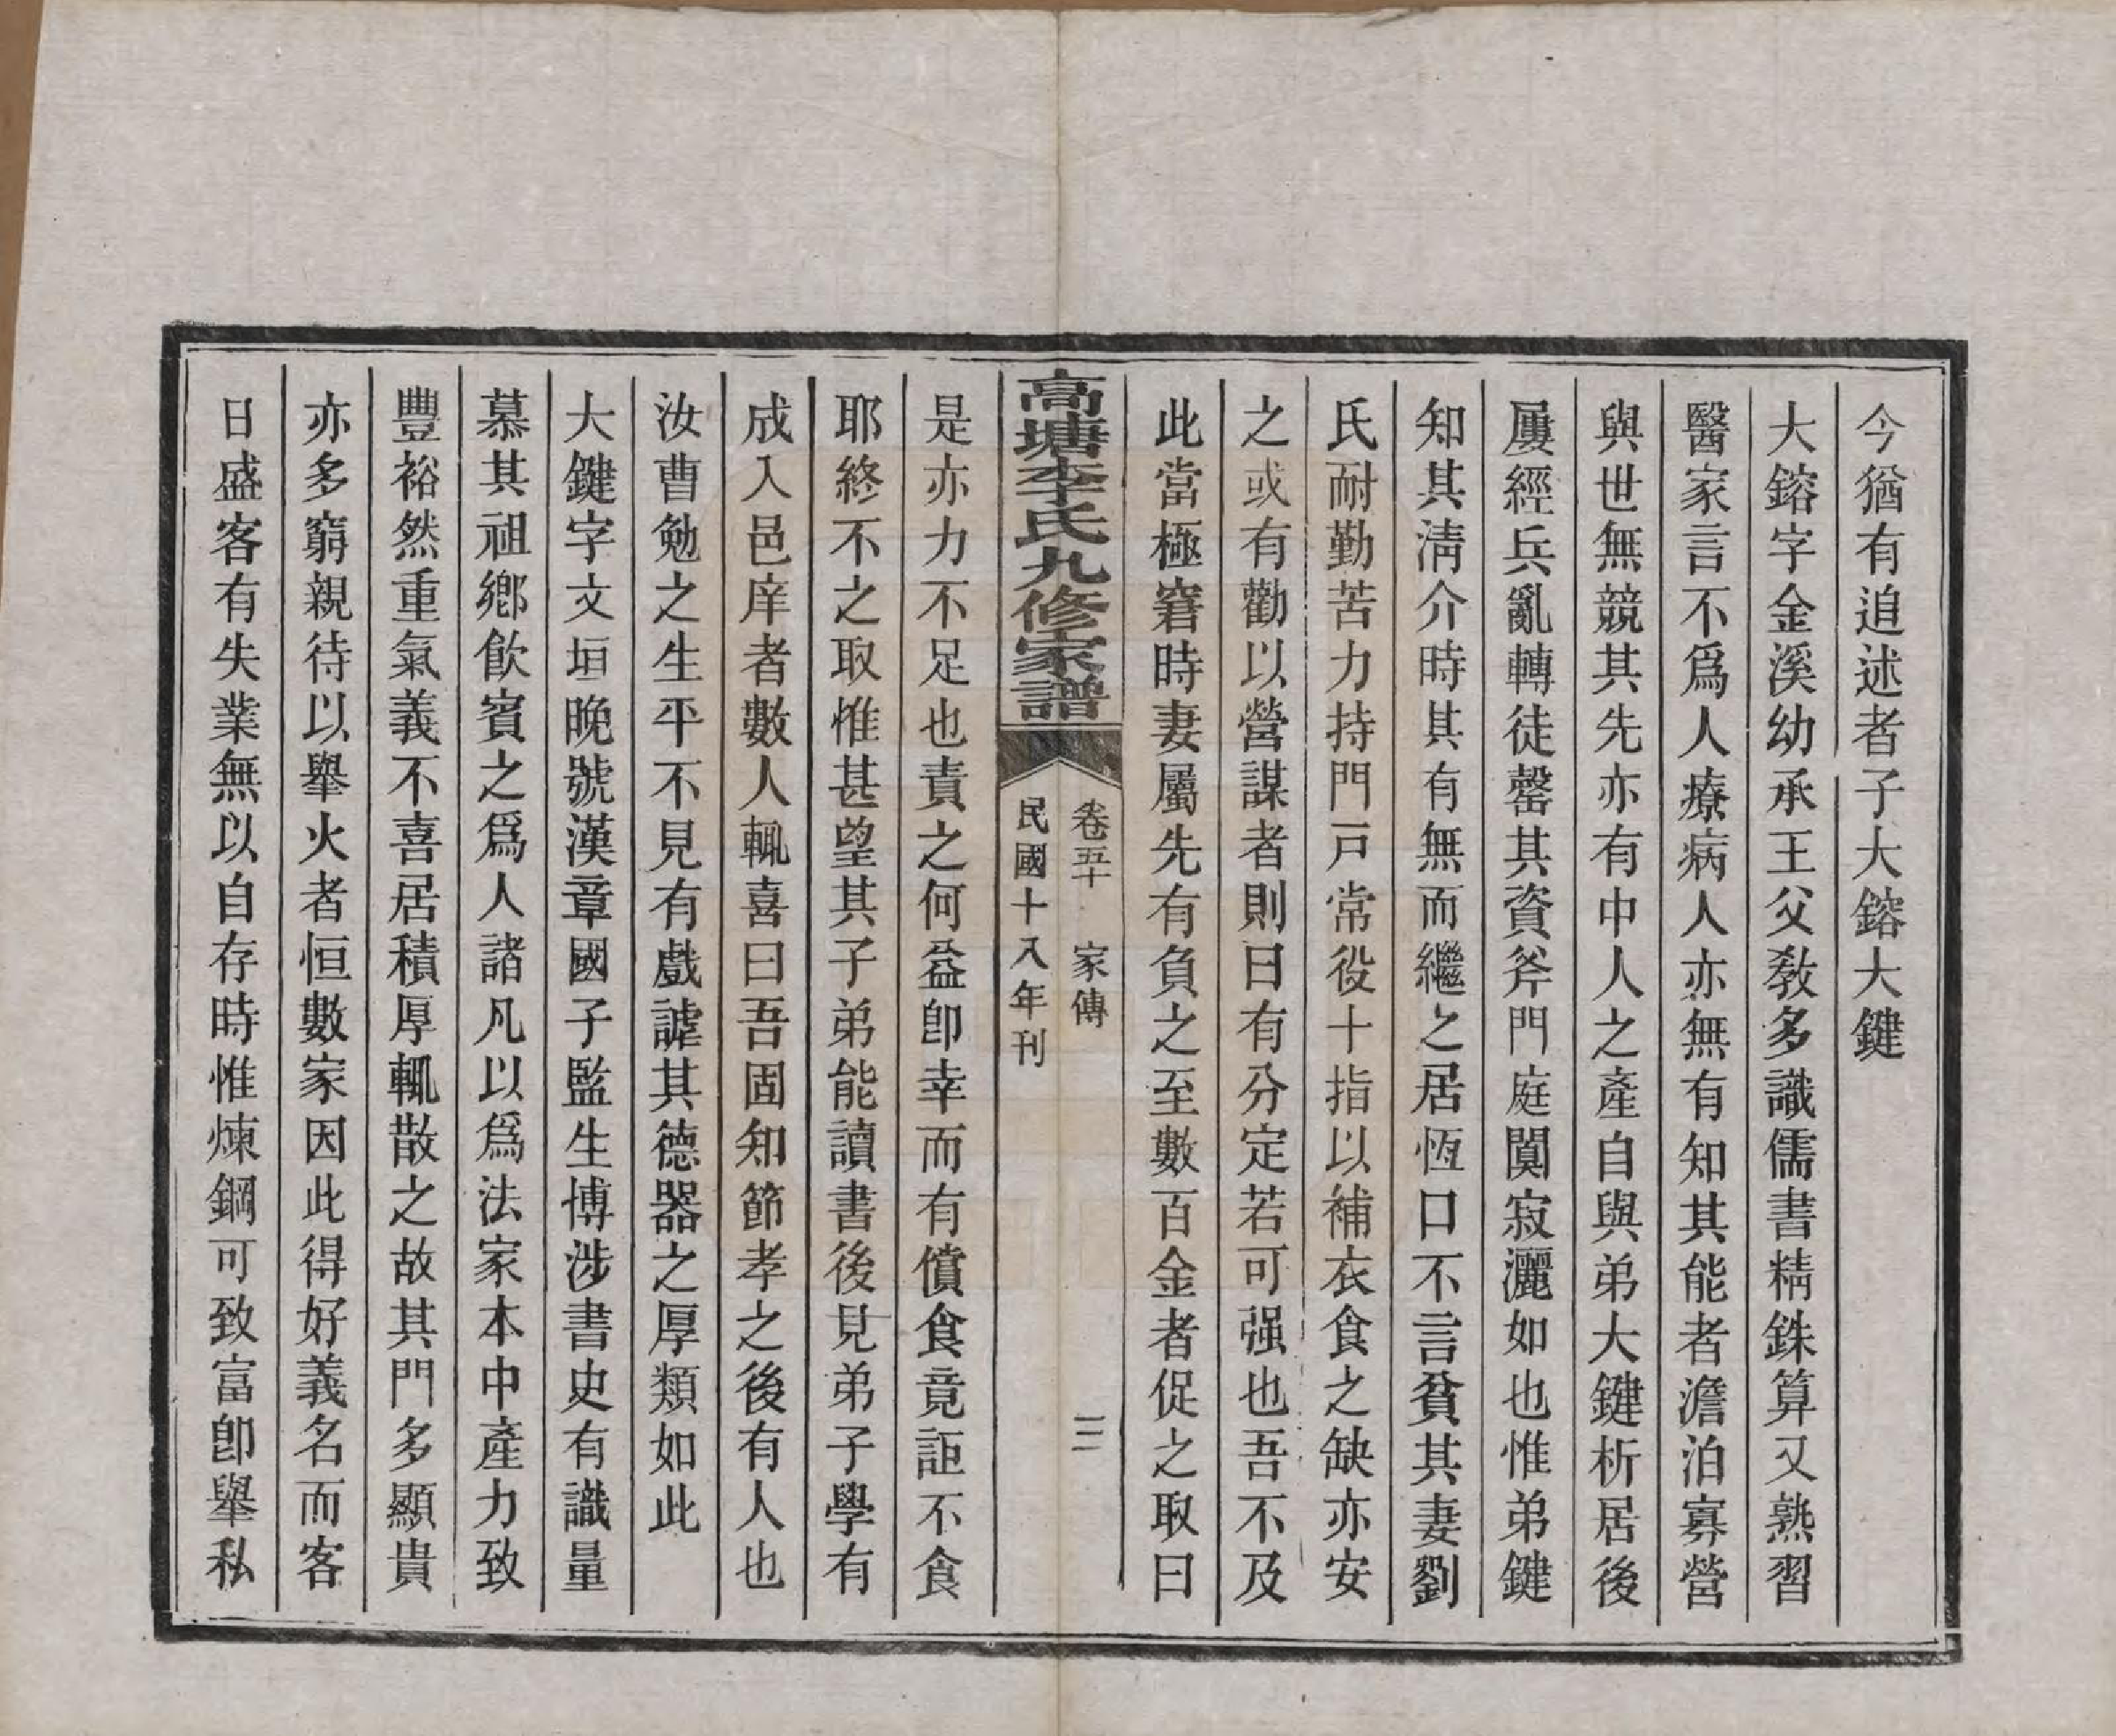 今猶有追述者子大鎔大鍵
大鎔字金溪幼承王父教多識儒書精銖算又熟習
醫家言不爲人療病人亦無有知其能者澹泊寡營
與世無競其先亦有中人之產自與弟大鍵析居後
屢經兵亂轉徒罄其資斧門庭闃寂灑如也惟弟鍵
知其淸介時其有無而繼之居恆口不言貧其妻劉
氏耐勤苦力持門戸常役十指以補衣食之缺亦安
之或有勸以營謀者則曰有分定若可强也吾不及
此當極窘時妻屬先有負之至數百金者促之取曰
高塘李氏九修家譜
卷五十　家傳
三
民國十八年刊
是亦力不足也責之何益卽幸而有償食竟詎不食
耶終不之取惟甚望其子弟能讀書後見弟子學有
成入邑庠者數人輒喜曰吾固知節孝之後有人也
汝曹勉之生平不見有戲謔其德器之厚類如此
大鍵字文垣晚號漢章國子監生博涉書史有識量
慕其祖鄉飮賓之爲人諸凡以爲法家本中產力致
豐裕然重氣義不喜居積厚輒散之故其門多顯貴
亦多窮親待以舉火者恒數家因此得好義名而客
日盛客有失業無以自存時惟煉鋼可致富卽舉私